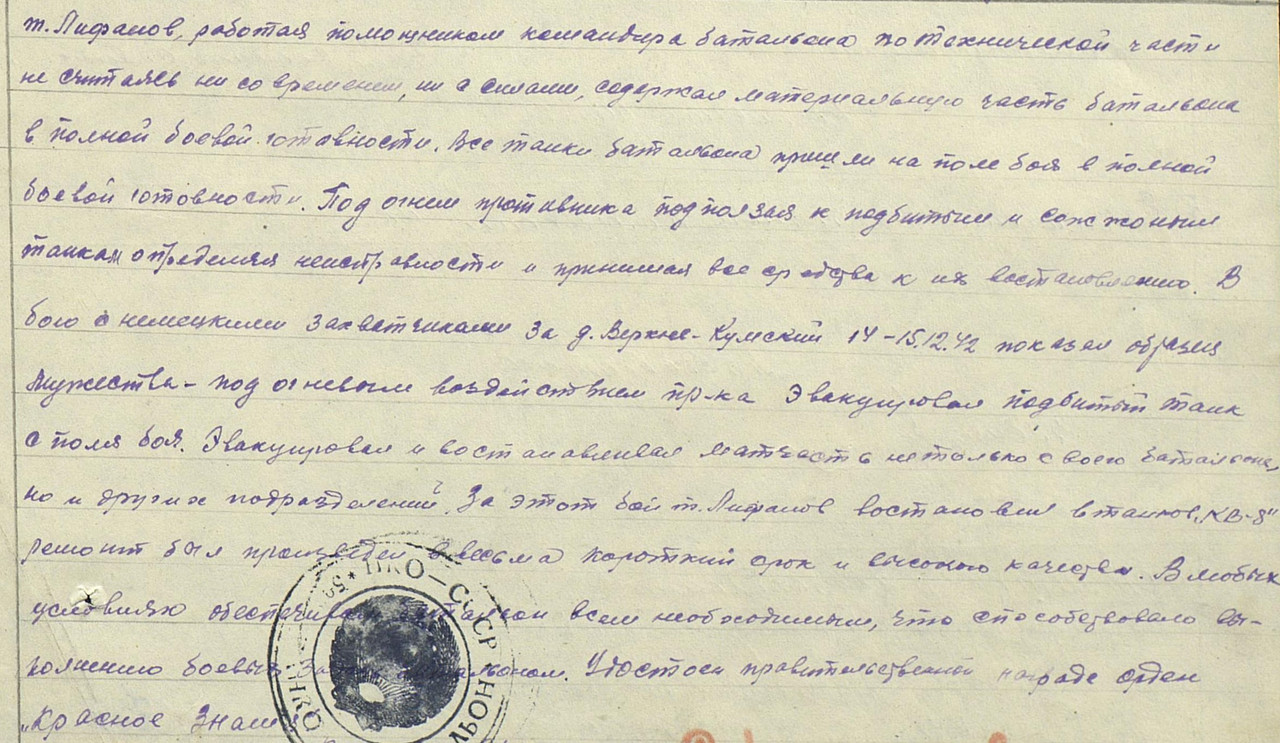 т. Лифанов, работая помощником командира батальона по технической части
не считаясь ни со временем, ни с силами, содержал материальную часть батальона
в полной боевой готовности. Все танки батальона пришли на поле боя в полной
боевой готовности. Под огнем противника подползая к подбитым и сожженым
танкам определял неисправности и принимал все средства к их востановлению. В
бою с немецкими захватчиками за д. Верхне-Кумский 14-15.12.42 показал образец
мужества - под огневым воздействием пр-ка эвакуировал подбитый танк
с поля боя. Эвакуировал и востанавливал матчасть не только своего батальона,
но и других подразделений. За этот бой т. Лифанов востановил 8 танков „КВ-8"
ремонт был произведен в весьма короткий срок и высокого качества. В любых
условиях обеспечивал батальон всем необходимым, что способствовало вы-
полнению боевых задач батальоном. Удостоен правительственной награде орден
„Красное Знам
НКО-СССР